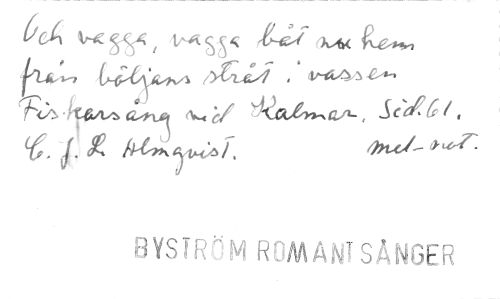 Och vagga, vagga båt nu hem
från böljans stråt i vassen
Fiskarsång vid Kalmar. Sid. 61.
C. J. L. Almqvist. mel-not.
BYSTRÖM ROMANTSÅNGER